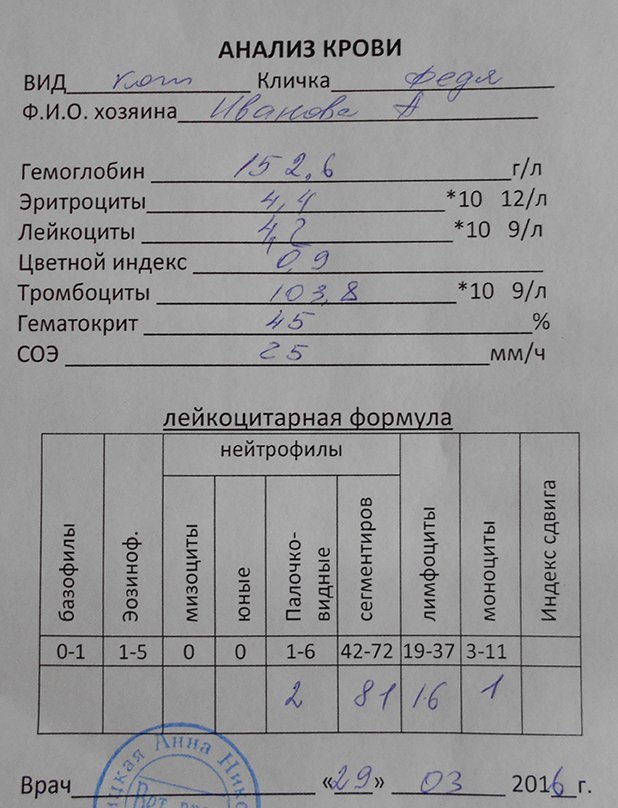 АНАЛИЗ КРОВИ
ВИД кот Кличка Федя
Ф.И.О. хозяина Иванова А
Гемоглобин 152,6 г/л
Эритроциты 4,4 *10 12/л
Лейкоциты 4,2 *10 9/л
Цветной индекс 0,9
Тромбоциты 103,8 *10 9/л
Гематокрит 45 %
СОЭ 25 мм/ч
лейкоцитарная формула
нейтрофилы
базофилы Эозиноф. мизоциты юные Палочко-видные сегментиров лимфоциты моноциты Индекс сдвига
0-1 1-5 0 0 1-6 42-72 19-37 3-11
2 81 16 1
Анна Нико
Врач «29» 03 2016 г.